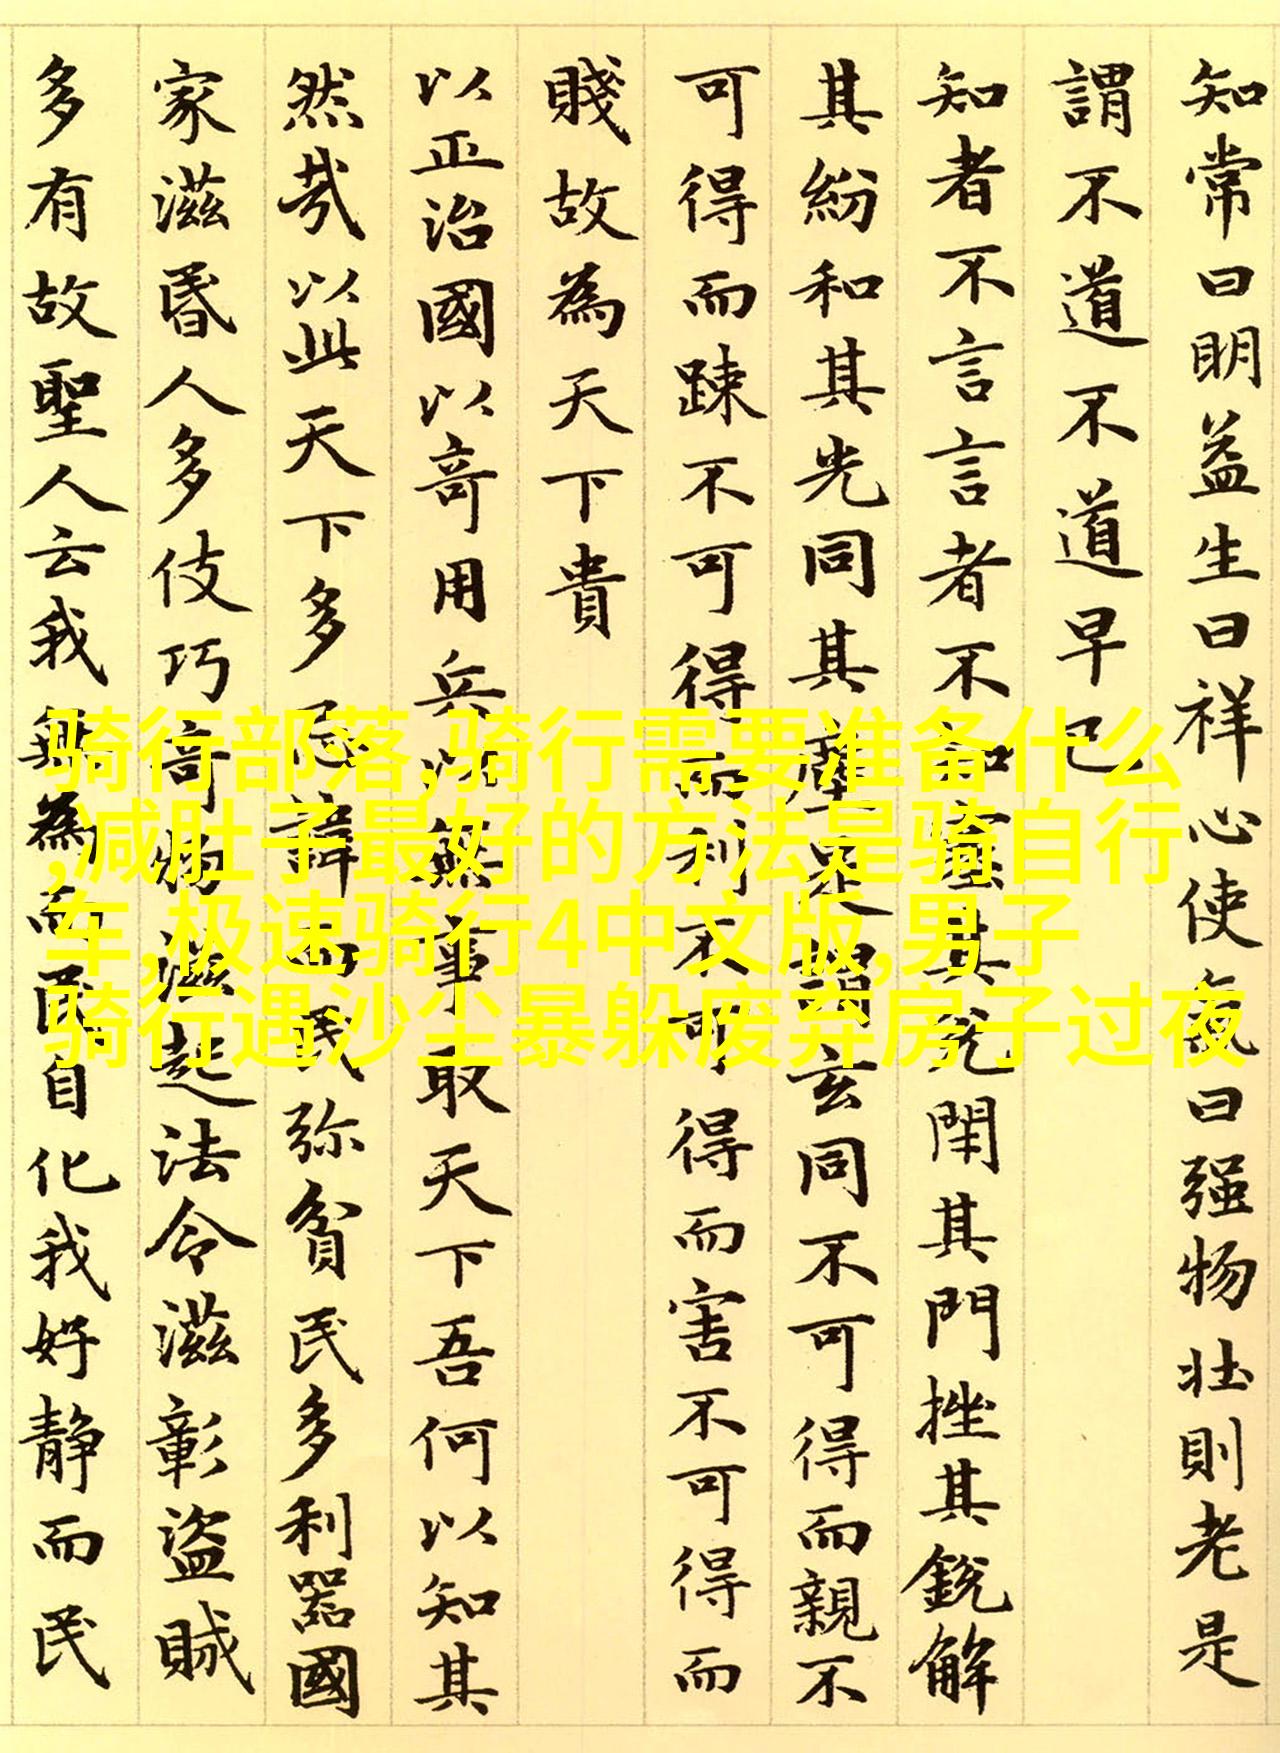 知常曰明益生曰祥心使氣曰强物壮則老是
謂不道不道早已
知者不言言者不知塞其兌閉其門挫其銳解
其紛和其光同其塵是謂玄同不可得而親不
可得而踈不可得而利不可得而害不可得而
賤故為天下貴
以正治國以奇用兵以無事取天下吾何以知其
然哉以此天下多忌諱而民弥貧民多利器國
家滋昬人多伎巧奇物滋起法令滋彰盜賊
多有故聖人云我無為而民自化我好静而民
骑行部落,骑行需要准备什么
,减肚子最好的方法是骑自行
车,极速骑行4中文版,男子
骑行遇沙尘暴躲废弃房子过夜